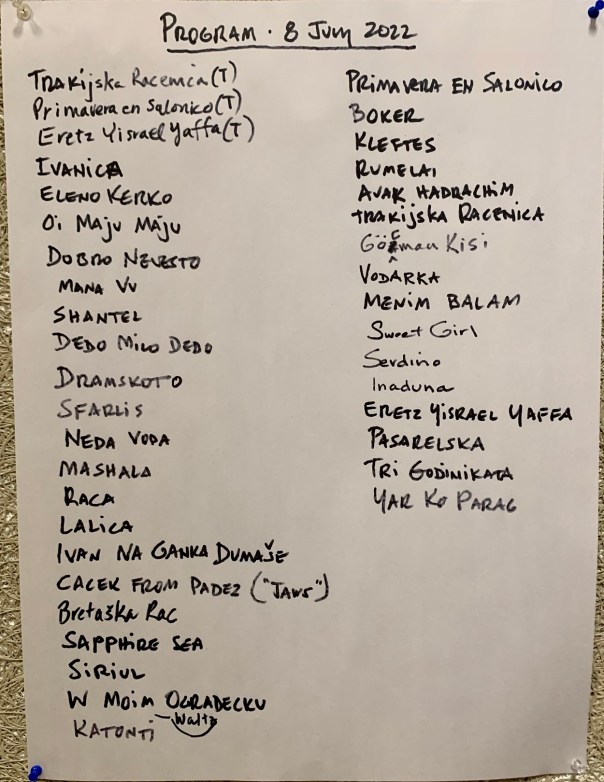 PROGRAM · 8 July 2022
Trakijska Racenica (T)
Primavera en Salonico (T)
Eretz Yisrael Yaffa (T)
IVANICA
ELENO KERKO
Oi MAJU MÁJU
DOBRO NEVESTO
MANA VU
SHANTEL
DEDO MILO DEDO
DRAMSKOTO
SFARLIS
NEDA VODA
MASHALA
RACA
LALICA
IVAN NA GANKA DUMAŠE
CACEK FROM PADEZ ("JAWS")
Bretaška Rac
SAPPHIRE SEA
SIRIUL
W MOIM OGRADECKU
KATONTI - Waltz
PRIMAVERA EN SALONICO
BOKER
KLEFTES
RUMELAI
AVAK HADRACHIM
TRAKIJSKA RACENICA
Kisi
VODARKA
MENIM BALAM
Sweet Girl
Serdino
Inaduna
ERETZ YISRAEL YAFFA
PASARELSKA
TRI GODINIKATA
YAR KO PARAG